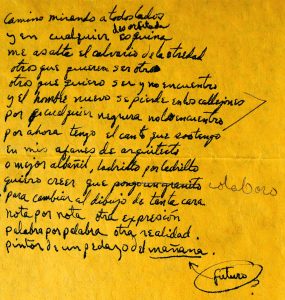 Camino mirando a todos lados
y en cualquier desorbitada esquina
me asalta el calvario de la otredad
otros que quieren ser otro
otros que quiero ser y no encuentro
y el hombre nuevo se pierde en los callejones
por cualquier negrura no lo encuentro
por ahora tengo el canto que sostengo
en mis afanes de arquitecto
o mejor albañil, ladrillo por ladrillo
quiero creer que pongo un granito colaboro
para cambiar el dibujo de tanta cara
nota por nota otra expresión
palabra por palabra otra realidad
pintor de un pedazo del mañana.
futuro